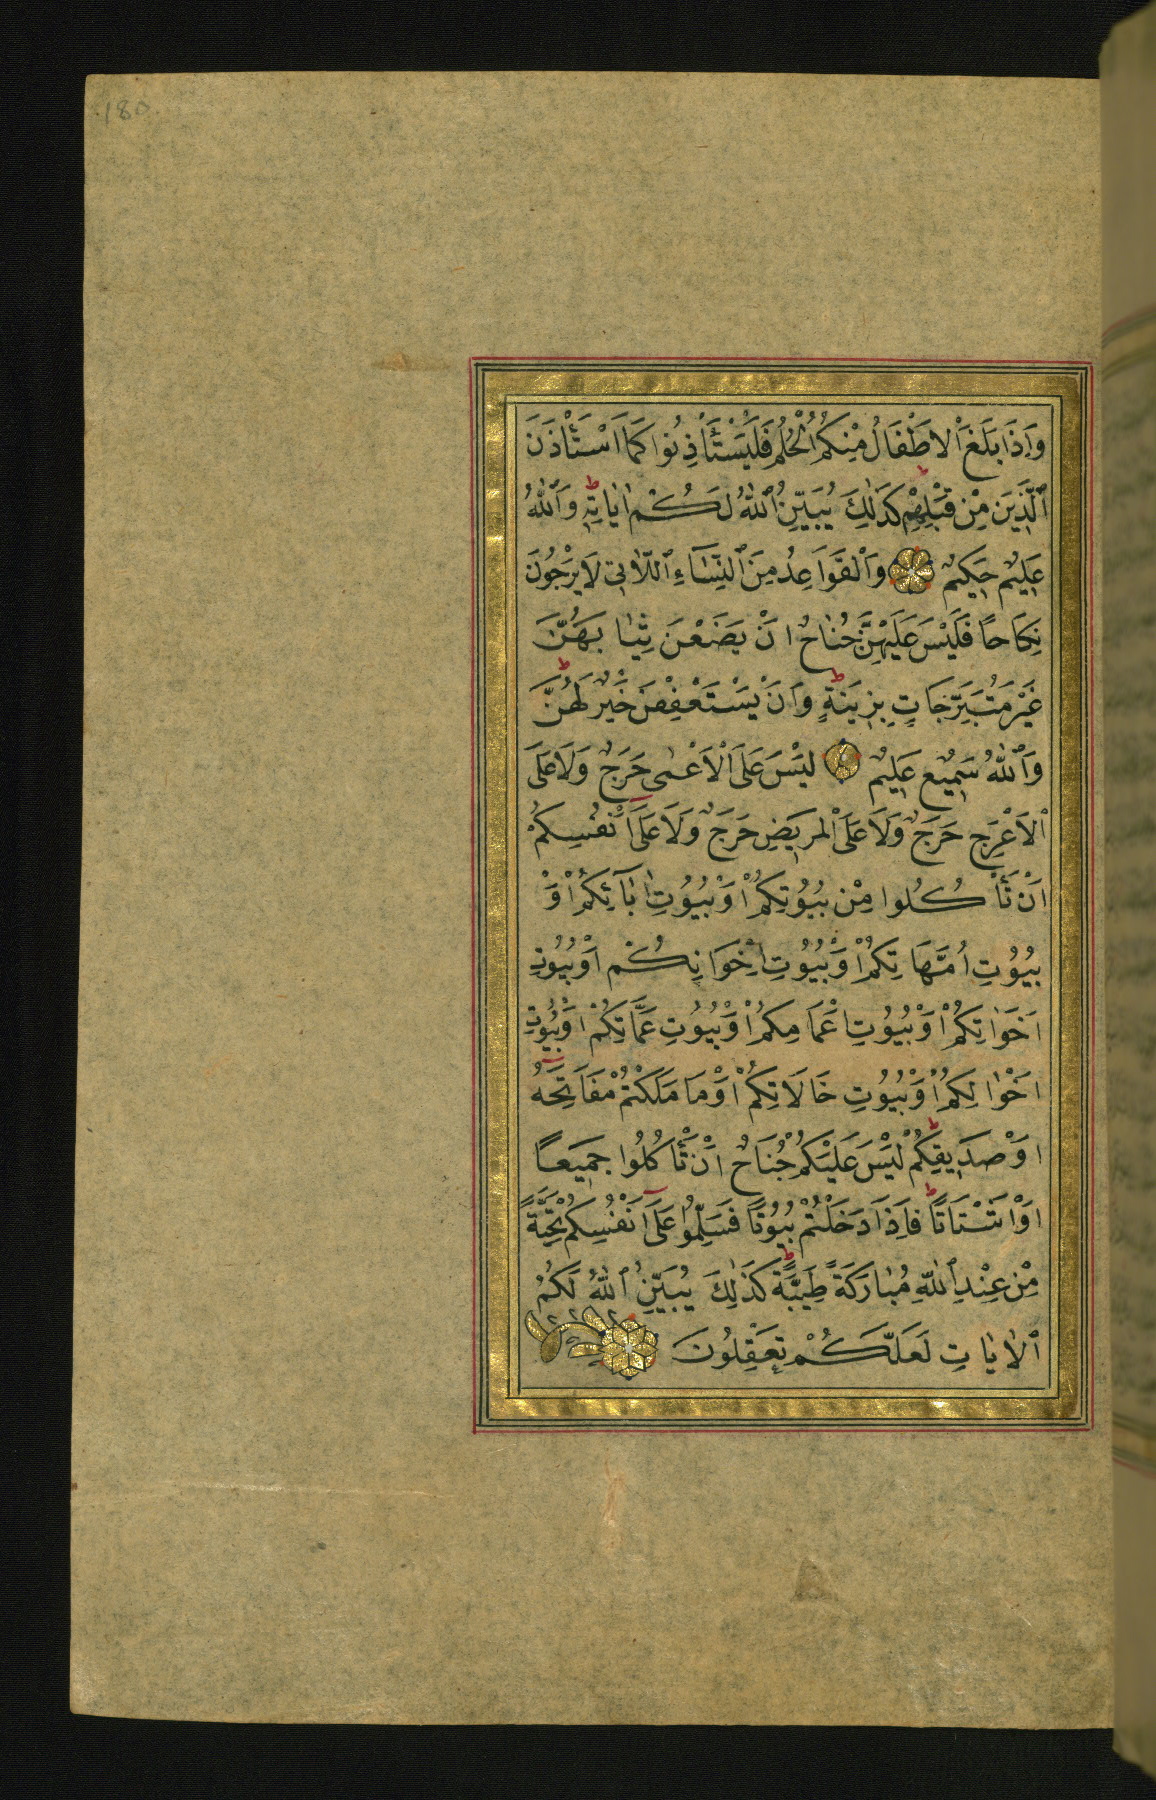 180
وَاِذَا بَلَغَ الْاَطْفَالُ مِنْكُمُ الْحُلُمَ فَلْيَسْتَأْذِنُوا كَمَا اسْتَأْذَنَ
الَّذِينَ مِنْ قَبْلِهِمْ كَذٰلِكَ يُبَيِّنُ اللّٰهُ لَكُمْ اٰيَاتِهٖ وَاللّٰهُ
عَلِيمٌ حَكِيمٌ وَالْقَوَاعِدُ مِنَ النِّسَآءِ اللّٰاتِي لَا يَرْجُونَ
نِكَاحًا فَلَيْسَ عَلَيْهِنَّ جُنَاحٌ اَنْ يَضَعْنَ ثِيَابَهُنَّ
غَيْرَ مُتَبَرِّجَاتٍ بِزِينَةٍ وَاَنْ يَسْتَعْفِفْنَ خَيْرٌ لَهُنَّ
وَاللّٰهُ سَمِيعٌ عَلِيمٌ لَيْسَ عَلَى الْاَعْمٰى حَرَجٌ وَلَا عَلَى
الْاَعْرَجِ حَرَجٌ وَلَا عَلَى الْمَرِيضِ حَرَجٌ وَلَا عَلٰٓى اَنْفُسِكُمْ
اَنْ تَأْكُلُوا مِنْ بُيُوتِكُمْ اَوْ بُيُوتِ اٰبَآئِكُمْ اَوْ
بُيُوتِ اُمَّهَاتِكُمْ اَوْ بُيُوتِ اِخْوَانِكُمْ اَوْ بُيُوتِ
اَخَوَاتِكُمْ اَوْ بُيُوتِ اَعْمَامِكُمْ اَوْ بُيُوتِ عَمَّاتِكُمْ اَوْ بُيُوتِ
اَخْوَالِكُمْ اَوْ بُيُوتِ خَالَاتِكُمْ اَوْ مَا مَلَكْتُمْ مَفَاتِحَهُٓ
اَوْ صَدِيقِكُمْ لَيْسَ عَلَيْكُمْ جُنَاحٌ اَنْ تَأْكُلُوا جَمِيعًا
اَوْ اَشْتَاتًا فَاِذَا دَخَلْتُمْ بُيُوتًا فَسَلِّمُوا عَلٰٓى اَنْفُسِكُمْ تَحِيَّةً
مِنْ عِنْدِ اللّٰهِ مُبَارَكَةً طَيِّبَةً كَذٰلِكَ يُبَيِّنُ اللّٰهُ لَكُمُ
الْاٰيَاتِ لَعَلَّكُمْ تَعْقِلُونَ